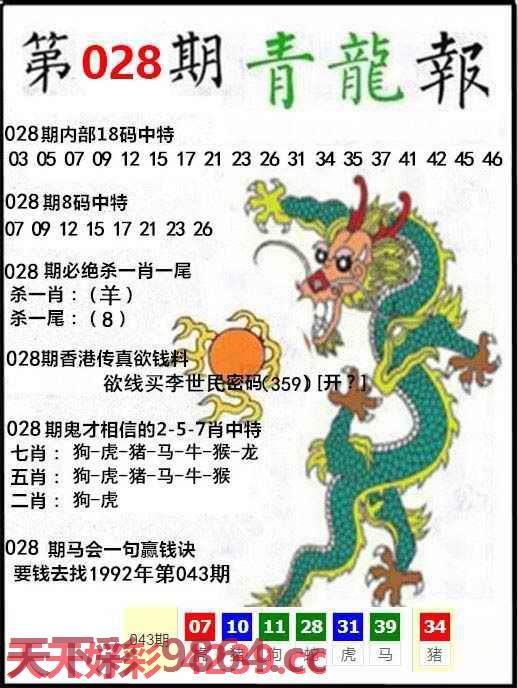 第028期青龍報
028期内部18码中特
03 05 07 09 12 15 17 21 23 26 31 34 35 37 41 42 45 46
028期8码中特
07 09 12 15 17 21 23 26
028期必绝杀一肖一尾
杀一肖：（羊）
杀一尾：（8）
028期香港传真欲钱料
欲线买李世民密码(359) [开？]
028期鬼才相信的2-5-7肖中特
七肖： 狗-虎-猪-马-牛-猴-龙
五肖： 狗-虎-猪-马-牛-猴
二肖： 狗-虎
028 期马会一句赢钱诀
要钱去找1992年第043期
043期 07 10 11 28 31 39 34
虎 马 猪
天下好彩98269.cc